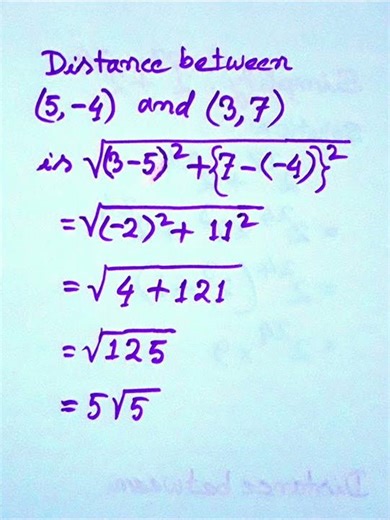 Distance between
(5,-4) and (3,7)
is √(3-5)²+{7-(-4)}²
=√(-2)²+ 11²
=√4+121
=√125
=5√5